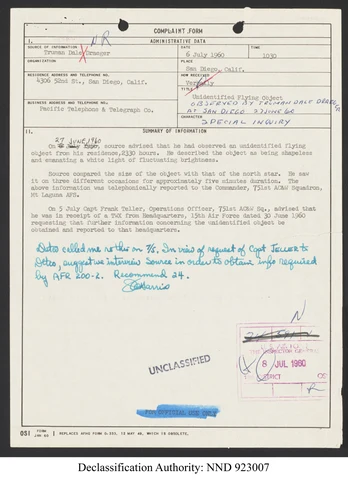 COMPLAINT FORM
I. ADMINISTRATIVE DATA
SOURCE OF INFORMATION
Truman Dale Draeger
DATE
6 July 1960
TIME
1030
ORGANIZATION
PLACE
San Diego, Calif.
RESIDENCE ADDRESS AND TELEPHONE NO.
4306 52nd St., San Diego, Calif.
HOW RECEIVED
Verbally
TITLE
Unidentified Flying Object
OBSERVED BY TRUMAN DALE
AT SAN DIEGO 27 JUNE 60
BUSINESS ADDRESS AND TELEPHONE NO.
Pacific Telephone & Telegraph Co.
SPECIAL INQUIRY
II. SUMMARY OF INFORMATION
27 JUNE 1960
On source advised that he had observed an unidentified flying
object from his residence, 2330 hours. He described the object as being shapeless
and emanating a white light of fluctuating brightness.
Source compared the size of the object with that of the north star. He saw
it on three different occasions for approximately five minutes duration. The
above information was telephonically reported to the Commander, 751st AC&W Squadron,
Mt Laguna AFS.
On 5 July Capt Frank Teller, Operations Officer, 751st AC&W Sq., advised that
he was in receipt of a TWX from Headquarters, 15th Air Force dated 30 June 1960
requesting that further information concerning the unidentified object be
obtained and reported to that headquarters.
called me re this on 7/5. In view of request of Capt Teller to
suggest we interview Source in order to obtain info required
by AFR 200-2. Recommend 24.
Harris
N
UNCLASSIFIED
8 JUL 1960
FOR OFFICIAL USE ONLY
OSI FORM
REPLACES AFHQ FORM 0-205, 13 MAY 48, WHICH IS OBSOLETE.
Declassification Authority: NND 923007